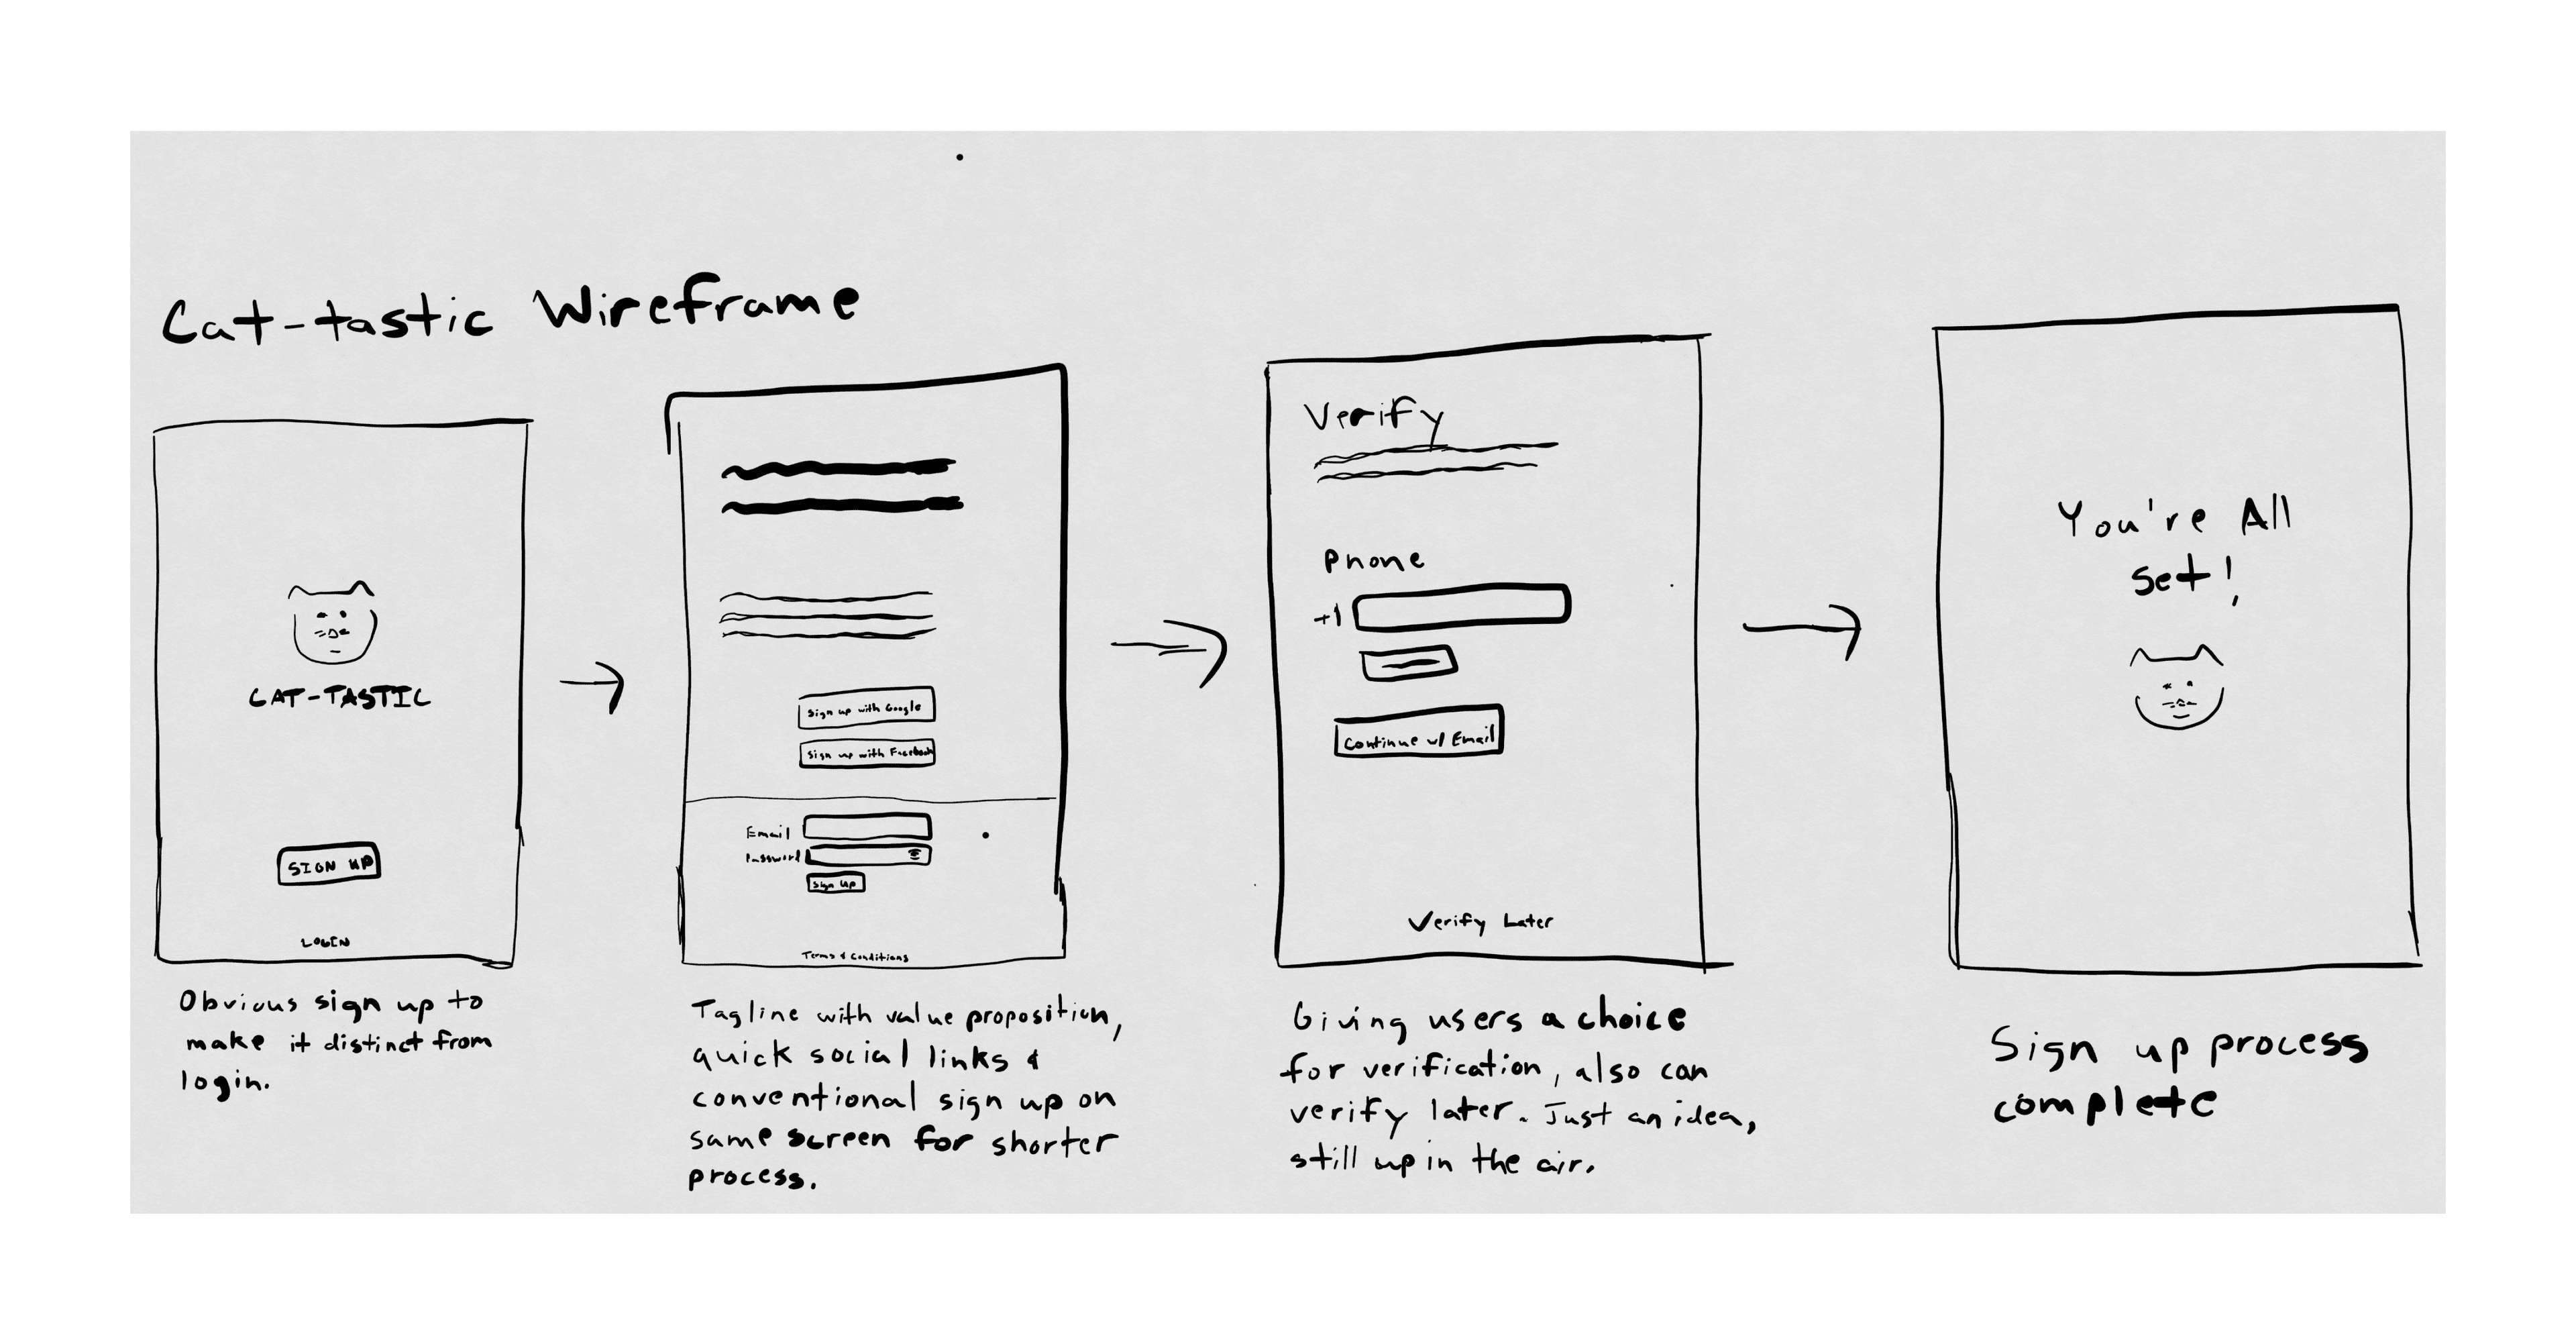 Cat-tastic Wireframe
CAT-TASTIC
SIGN UP
LOGIN
Obvious sign up to
make it distinct from
login.
Sign up with Google
Sign up with Facebook
Email
Password
Sign Up
Terms & Conditions
Tagline with value proposition,
quick social links &
conventional sign up on
same screen for shorter
process.
Verify
Phone
+1
Continue w/ Email
Verify Later
Giving users a choice
for verification, also can
verify later. Just an idea,
still up in the air.
You're All
set!
Sign up process
complete